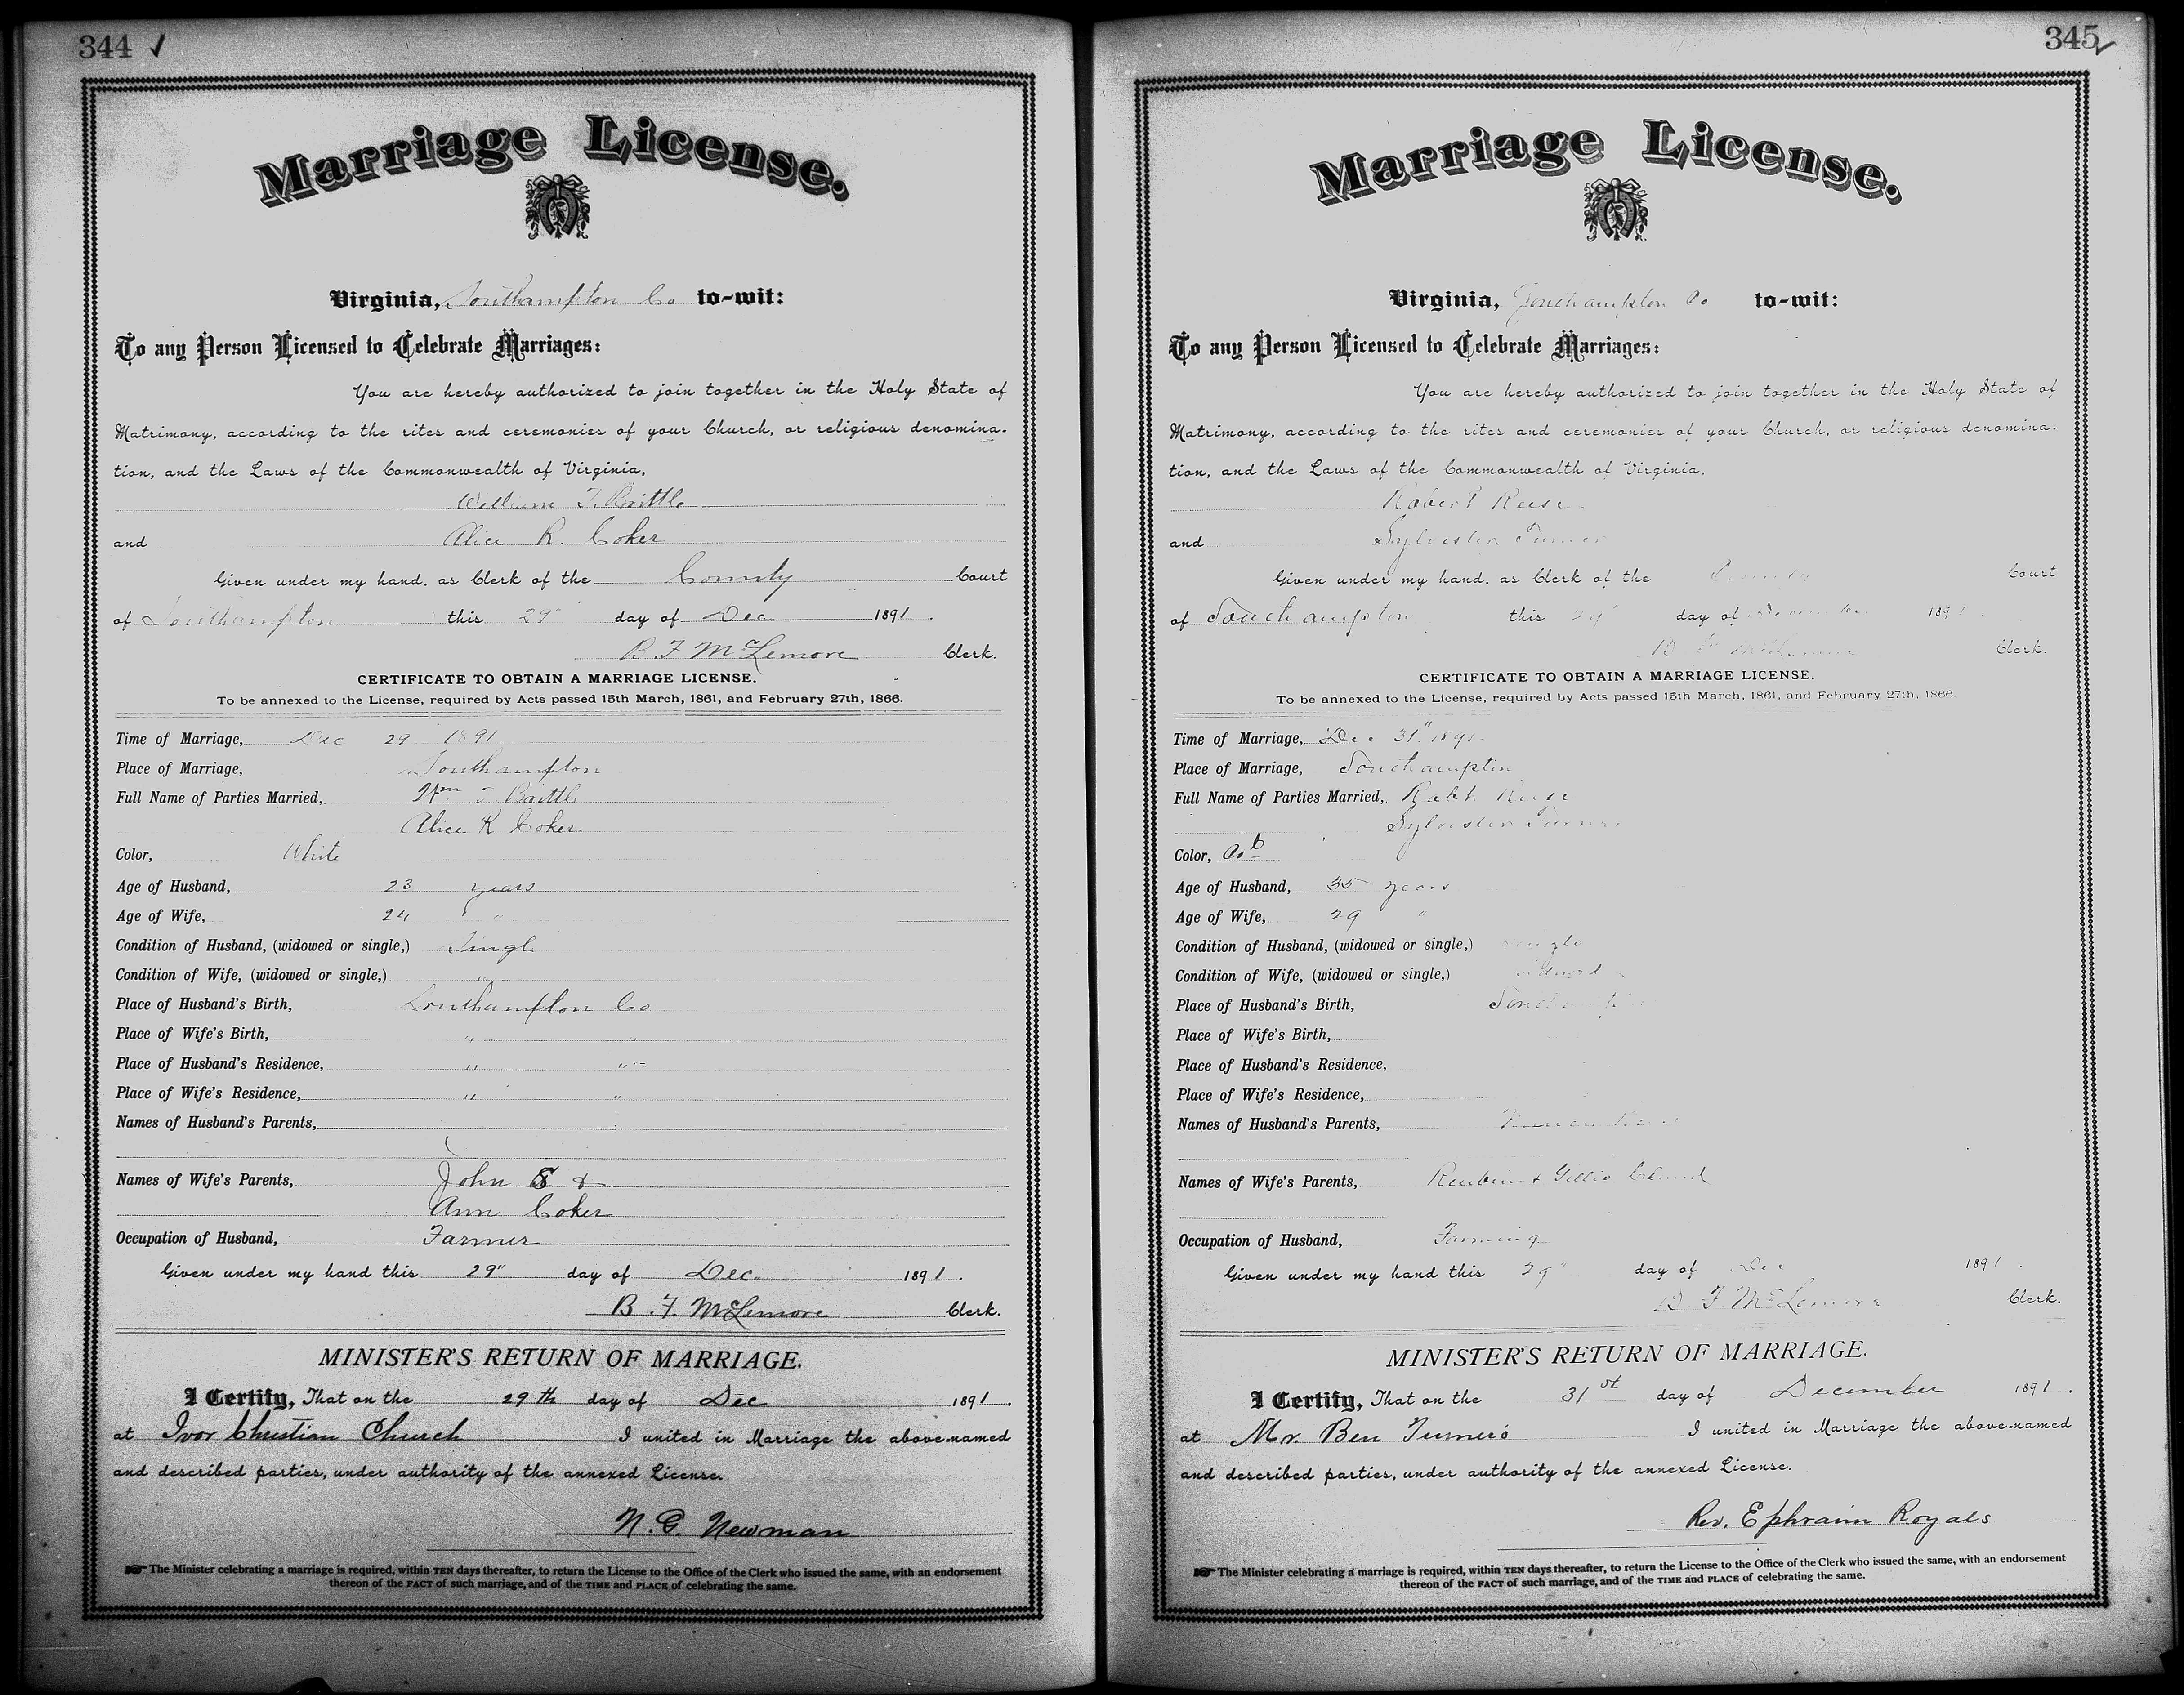 344 ✓
Marriage License.
Virginia, Southampton Co to-wit:
To any Person Licensed to Celebrate Marriages:
You are hereby authorized to join together in the Holy State of
Matrimony, according to the rites and ceremonies of your Church, or religious denomina-
tion, and the Laws of the Commonwealth of Virginia,
William T. Brittle
and Alice R. Coker
Given under my hand, as Clerk of the County Court
of Southampton this 29" day of Dec 1891.
B. F. McLemore Clerk.
CERTIFICATE TO OBTAIN A MARRIAGE LICENSE.
To be annexed to the License, required by Acts passed 15th March, 1861, and February 27th, 1866.
Time of Marriage, Dec 29 1891
Place of Marriage, Southampton
Full Name of Parties Married, Wm T Brittle
Alice R Coker
Color, White
Age of Husband, 23 years
Age of Wife, 24 "
Condition of Husband, (widowed or single,) Single
Condition of Wife, (widowed or single,) "
Place of Husband's Birth, Southampton Co
Place of Wife's Birth, " "
Place of Husband's Residence, " "
Place of Wife's Residence, " "
Names of Husband's Parents,
Names of Wife's Parents, John S &
Ann Coker
Occupation of Husband, Farmer
Given under my hand this 29" day of Dec. 1891.
B. F. McLemore Clerk.
MINISTER'S RETURN OF MARRIAGE.
I Certify, That on the 29th day of Dec 1891.
at Ivor Christian Church I united in Marriage the above-named
and described parties, under authority of the annexed License.
N. G. Newman
☞ The Minister celebrating a marriage is required, within TEN days thereafter, to return the License to the Office of the Clerk who issued the same, with an endorsement
thereon of the FACT of such marriage, and of the TIME and PLACE of celebrating the same.
345 ✓
Marriage License.
Virginia, Southampton Co to-wit:
To any Person Licensed to Celebrate Marriages:
You are hereby authorized to join together in the Holy State of
Matrimony, according to the rites and ceremonies of your Church, or religious denomina-
tion, and the Laws of the Commonwealth of Virginia,
Robert Reese
and Sylvester Turner
Given under my hand, as Clerk of the County Court
of Southampton this 29" day of December 1891
B. F. McLemore Clerk.
CERTIFICATE TO OBTAIN A MARRIAGE LICENSE.
To be annexed to the License, required by Acts passed 15th March, 1861, and February 27th, 1866.
Time of Marriage, Dec 31" 1891
Place of Marriage, Southampton
Full Name of Parties Married, Robt Reese
Sylvester Turner
Color, Cold
Age of Husband, 35 years
Age of Wife, 29 "
Condition of Husband, (widowed or single,) single
Condition of Wife, (widowed or single,)
Place of Husband's Birth, Southampton
Place of Wife's Birth,
Place of Husband's Residence,
Place of Wife's Residence,
Names of Husband's Parents,
Names of Wife's Parents, Reubin &
Occupation of Husband, Farming
Given under my hand this 29" day of Dec 1891.
B. F. McLemore Clerk.
MINISTER'S RETURN OF MARRIAGE.
I Certify, That on the 31st day of December 1891.
at Mr. Ben Turner's I united in Marriage the above-named
and described parties, under authority of the annexed License.
Rev. Ephraim Royals
☞ The Minister celebrating a marriage is required, within TEN days thereafter, to return the License to the Office of the Clerk who issued the same, with an endorsement
thereon of the FACT of such marriage, and of the TIME and PLACE of celebrating the same.